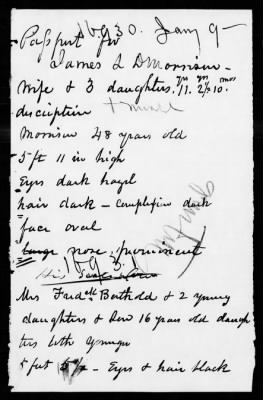 16930. Jany 9-
Passport for
James L D Morrison-
Wife & 3 daughters. 11 yrs. 2 yrs 10. mos
discription
Morrison 48 years old
5 ft 11 in high
Eyes dark hazel
hair dark - complexion dark
face oval
large nose, prominent
16931
Mrs Fredk Berthold & 2 young
daughters & Son 16 years old daugh
ters both younger
5 feet - Eyes & hair black